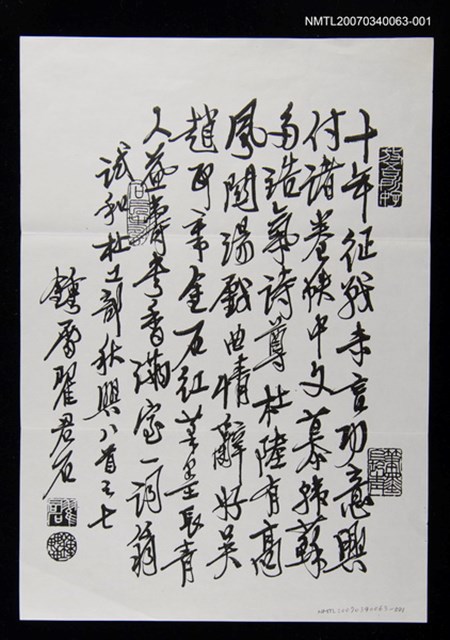 NMTL20070340063-001
十年征戰未言功意興
付諸卷帙中文慕韓蘇
多浩氣詩尊杜陸有高
風關湯戲曲情辭好吳
趙丹青金石紅長青
人益壽書香滿室一詞翁
試和杜工部秋興八首之七
翟君石
NMTL20070340063-001